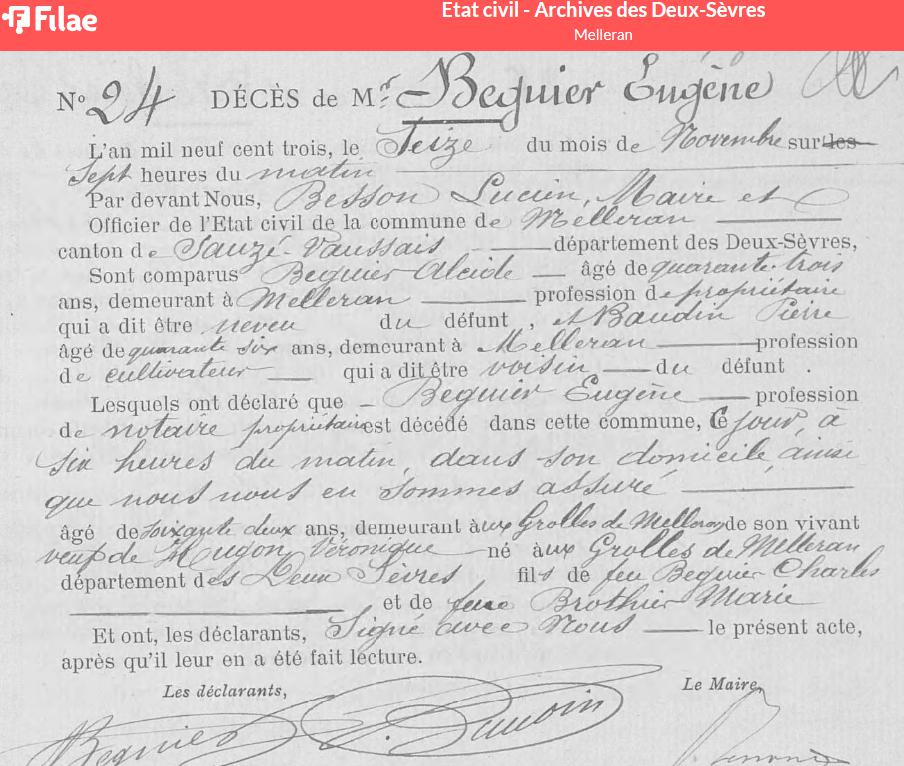 Filae
Etat civil - Archives des Deux-Sèvres
Melleran
N° 24 DÉCÈS de Mr Beguier Eugène
L'an mil neuf cent trois, le Seize du mois de Novembre sur les
Sept heures du matin
Par devant Nous, Besson Lucien, Maire et
Officier de l'Etat civil de la commune de Melleran
canton de Sauzé-Vaussais département des Deux-Sèvres,
Sont comparus Beguier Alcide âgé de quarante-trois
ans, demeurant à Melleran profession de propriétaire
qui a dit être neveu du défunt, et Baudin Pierre
âgé de quarante six ans, demeurant à Melleran profession
de cultivateur qui a dit être voisin du défunt.
Lesquels ont déclaré que Beguier Eugène profession
de notaire propriétaire est décédé dans cette commune, Ce jour, à
six heures du matin, dans son domicile, ainsi
que nous nous en sommes assuré
âgé de soixante deux ans, demeurant aux Grolles de Melleran de son vivant
veuf de Hugon Véronique né aux Grolles de Melleran
département des Deux Sèvres fils de feu Beguier Charles
et de feue Brothier Marie
Et ont, les déclarants, Signé avec Nous le présent acte,
après qu'il leur en a été fait lecture.
Les déclarants, Le Maire,
Beguier P. Baudin